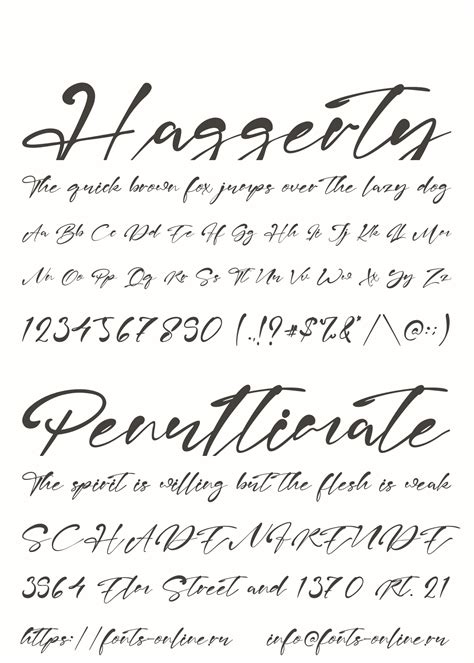 Haggerty
The quick brown fox jumps over the lazy dog
Aa Bb Cc Dd Ee Ff Gg Hh Ii Jj Kk Ll Mm
Nn Oo Pp Qq Rr Ss Tt Uu Vv Ww Xx Yy Zz
1234567890 (.,!?#$%&'/\@:;)
Penultimate
The spirit is willing but the flesh is weak
SCHADENFREUDE
3964 Elm Street and 1370 Rt. 21
https://fonts-online.ru info@fonts-online.ru